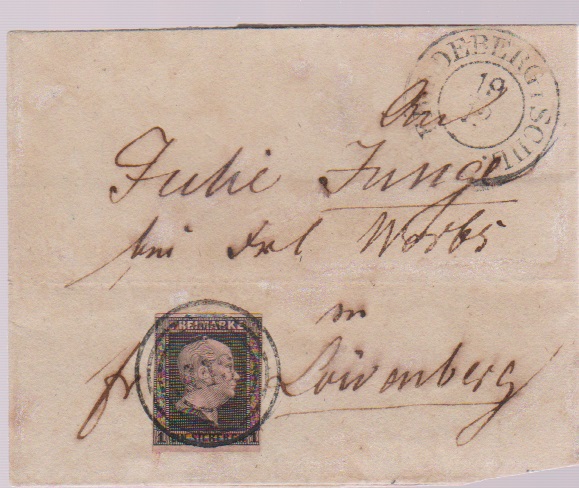 FRIEDEBERG I SCHL.
19
An
Julie Junge
bei Frl Worbs
in
fr Löwenberg
FREIMARKE
1 SILBERGR. 1